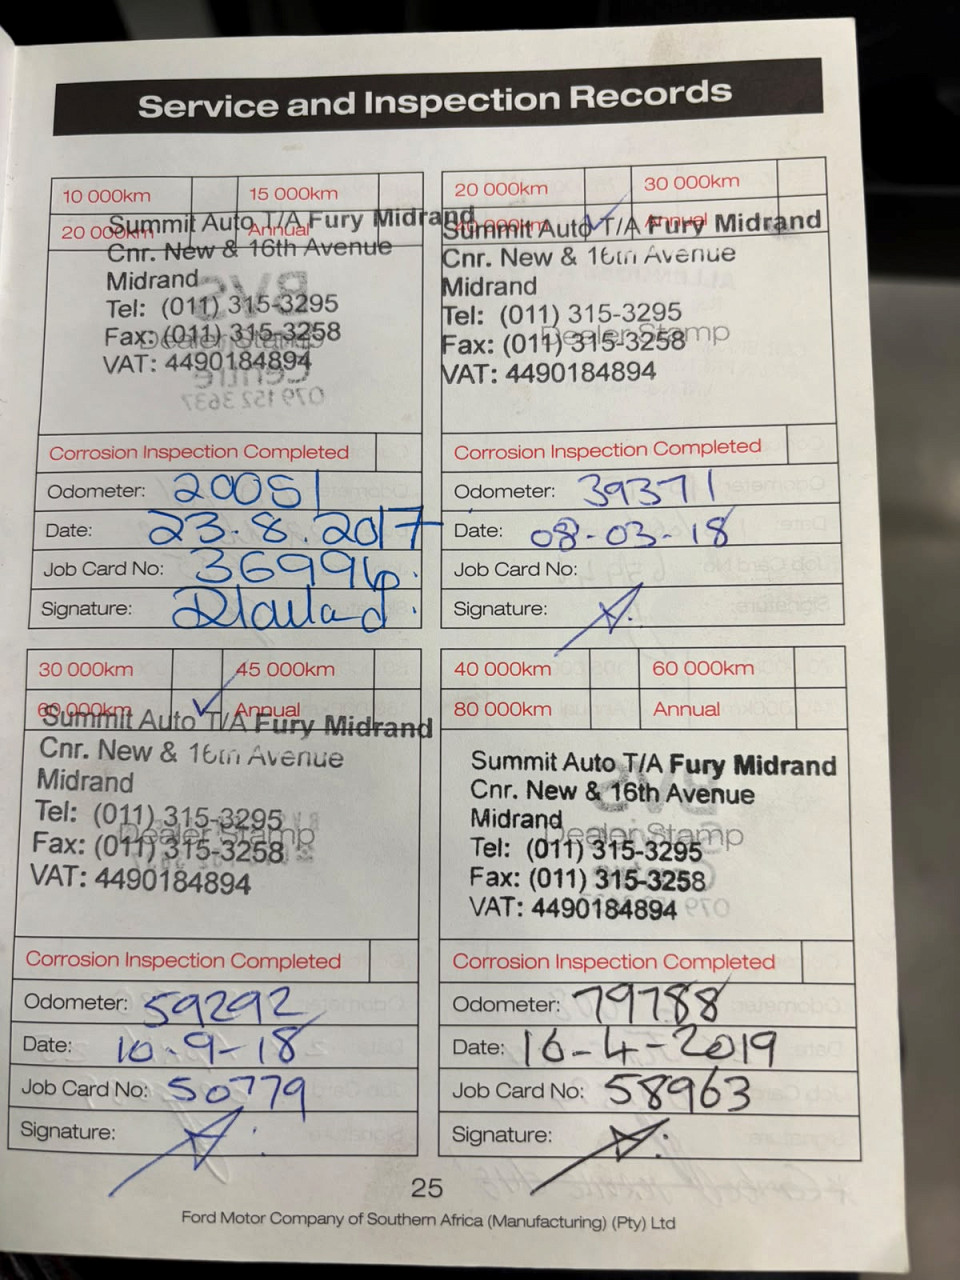 Service and Inspection Records
10 000km 15 000km
20 000km Annual
Summit Auto T/A Fury Midrand
Cnr. New & 16th Avenue
Midrand
Tel: (011) 315-3295
Fax: (011) 315-3258
VAT: 4490184894
Dealer Stamp
Corrosion Inspection Completed
Odometer: 20051
Date: 23.8.2017
Job Card No: 36996.
Signature:
20 000km 30 000km
40 000km Annual
Summit Auto T/A Fury Midrand
Cnr. New & 16th Avenue
Midrand
Tel: (011) 315-3295
Fax: (011) 315-3258
VAT: 4490184894
Dealer Stamp
Corrosion Inspection Completed
Odometer: 39371
Date: 08-03-18
Job Card No:
Signature:
30 000km 45 000km
60 000km Annual
Summit Auto T/A Fury Midrand
Cnr. New & 16th Avenue
Midrand
Tel: (011) 315-3295
Fax: (011) 315-3258
VAT: 4490184894
Dealer Stamp
Corrosion Inspection Completed
Odometer: 59292
Date: 10-9-18
Job Card No: 50779
Signature:
40 000km 60 000km
80 000km Annual
Summit Auto T/A Fury Midrand
Cnr. New & 16th Avenue
Midrand
Tel: (011) 315-3295
Fax: (011) 315-3258
VAT: 4490184894
Dealer Stamp
Corrosion Inspection Completed
Odometer: 79788
Date: 16-4-2019
Job Card No: 58963
Signature:
25
Ford Motor Company of Southern Africa (Manufacturing) (Pty) Ltd